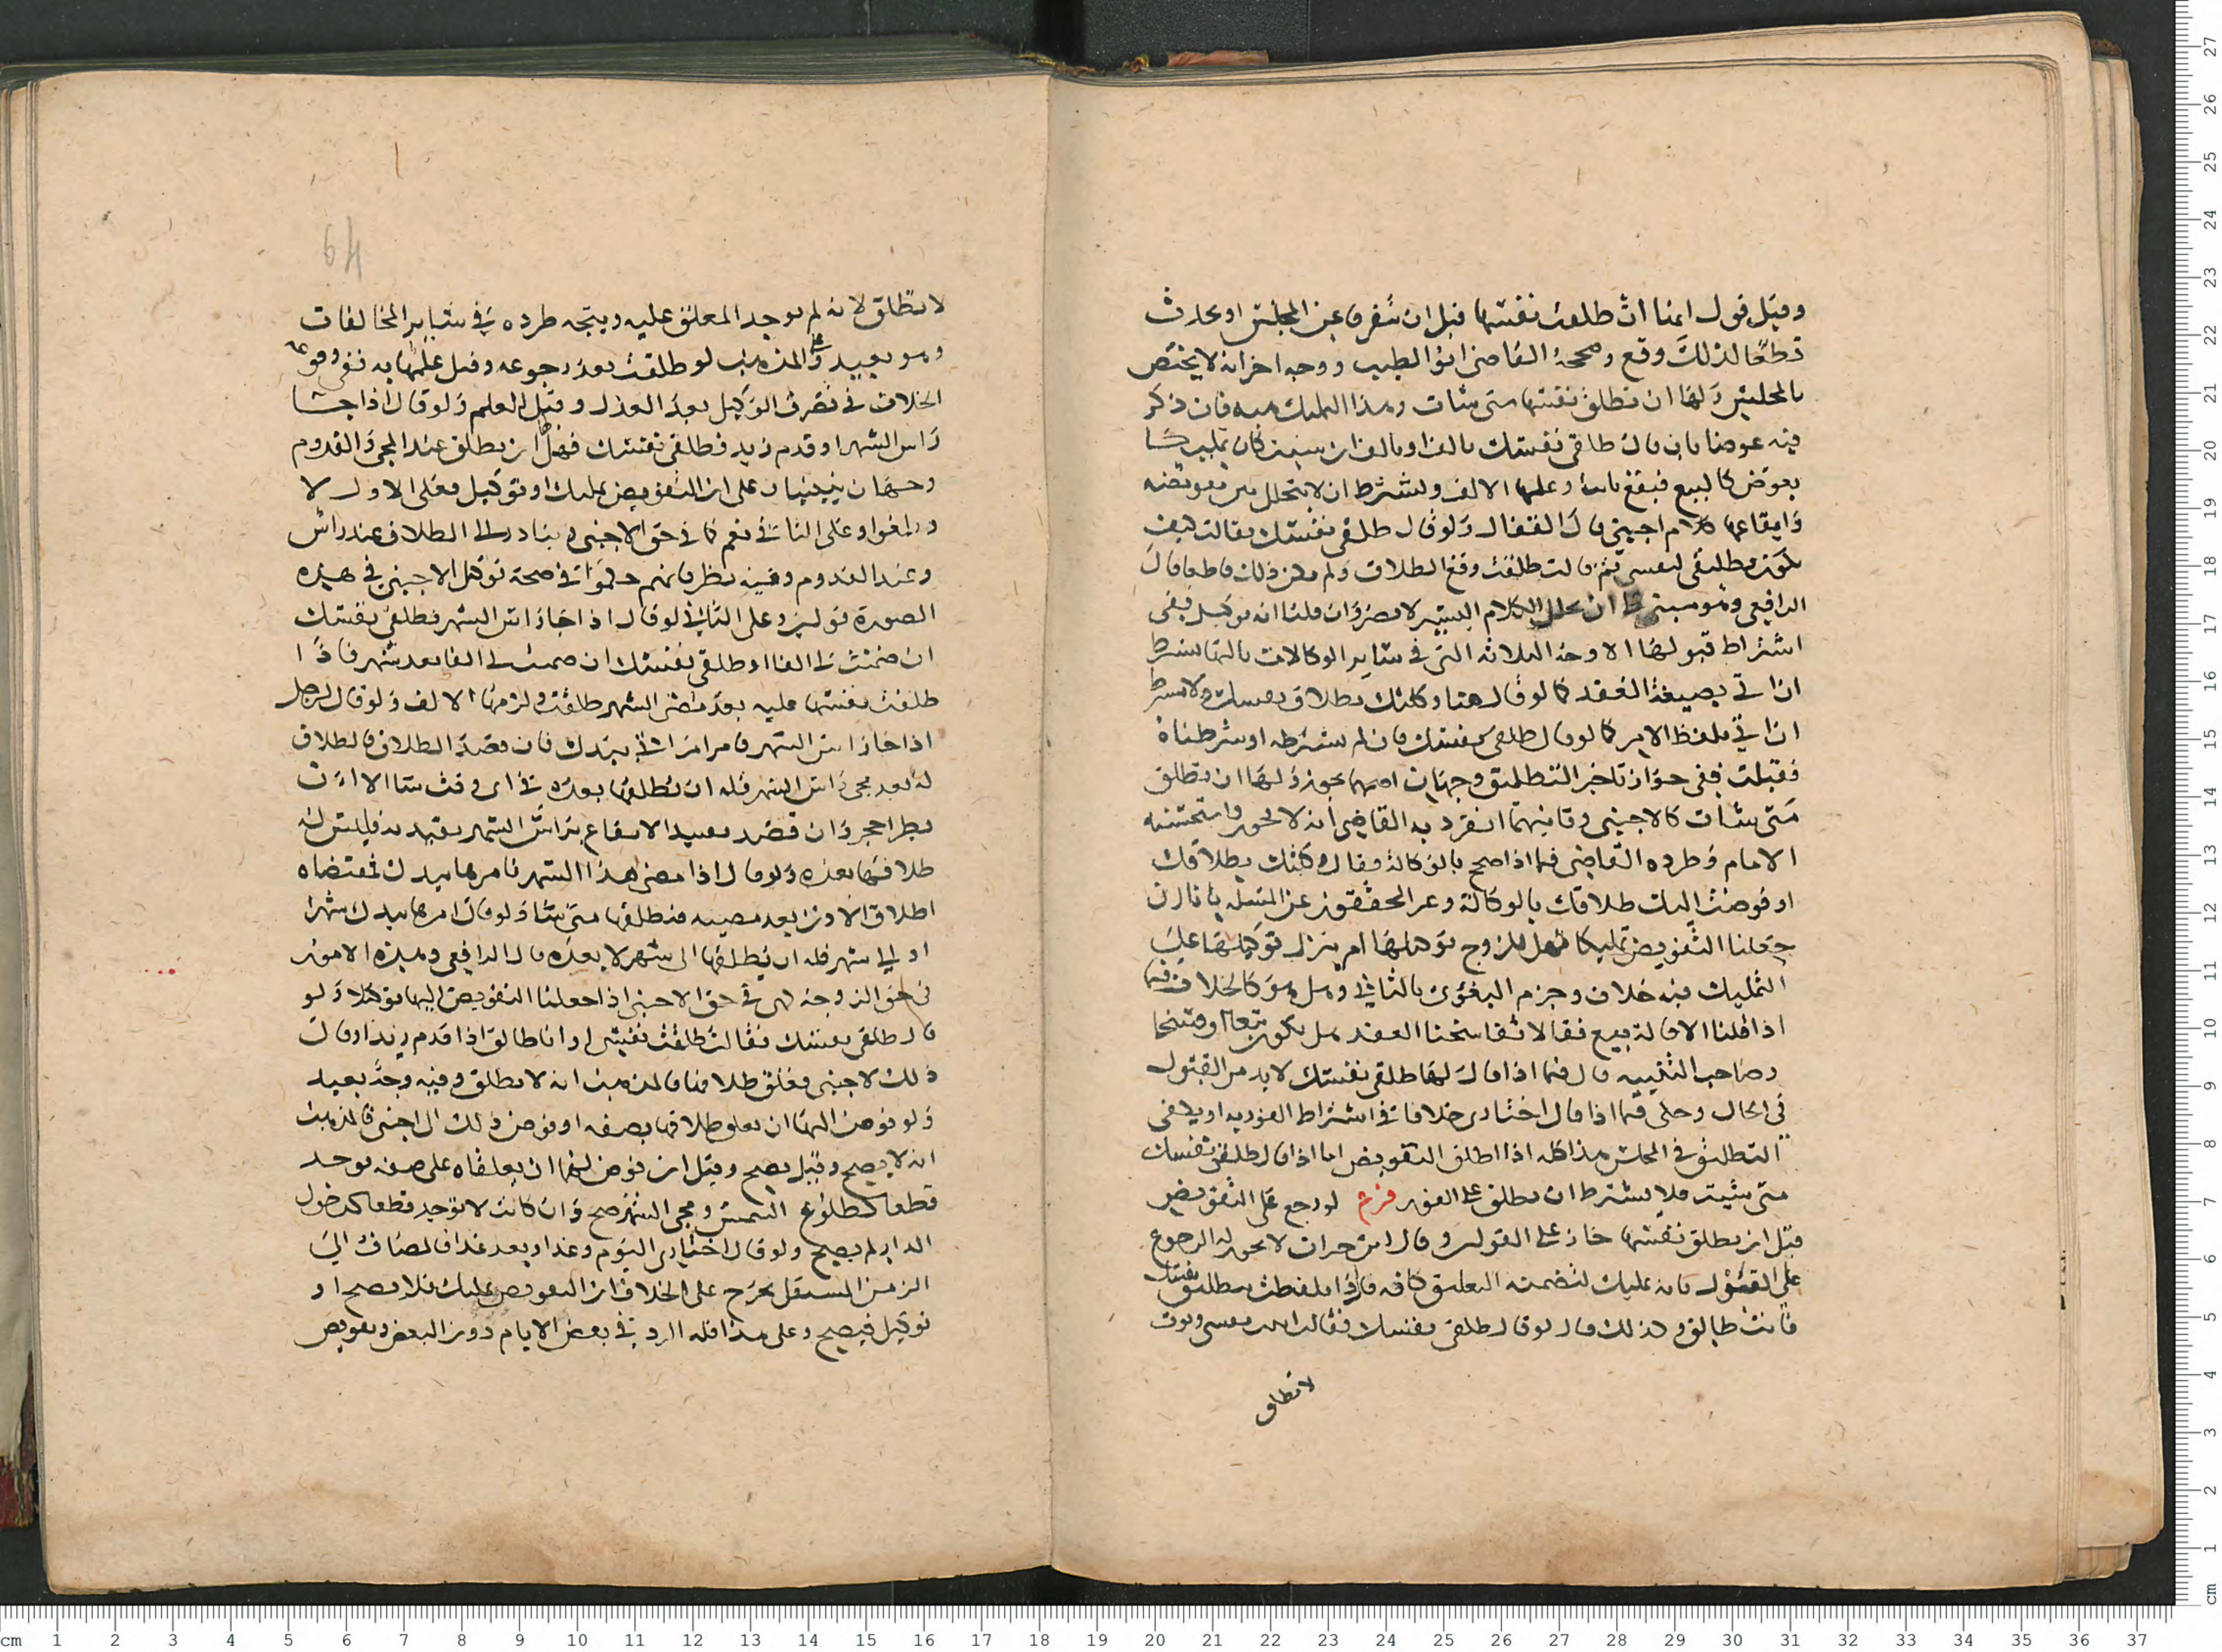 وقيل قول امنا ان طلقت نفسها قبل ان يتفرقا عن المجلس او يحدث
قطعا لذلك وقع وصححه القاضي ابو الطيب ووجه اخر انه لا يختص
بالمجلس ولها ان تطلق نفسها متى شاءت وهذا التمليك فان ذكر
فيه عوضا بان قال طلقي نفسك بالف او بالف ان شئت كان تمليكا
بعوض كالبيع فيقع بائنا وعليها الالف ويشترط ان لا يتخلل بين تفويضه
وايقاعها كلام اجنبي قال القفال ولو قال طلقي نفسك فقالت كيف
يكون تطليقي لنفسي ثم قالت طلقت وقع الطلاق ولم يكن ذلك قاطعا قال
الرافعي وهو مبني على ان تخلل الكلام اليسير لا يضر وان قلنا انه توكيل ففي
اشتراط قبولها الاوجه الثلاثة التي في سائر الوكالات ثالثها يشترط
ان اتى بصيغة العقد كما لو قال هنا وكلتك بطلاق نفسك ولا يشترط
ان اتى بلفظ الامر كما لو قال طلقي نفسك فان لم نشترطه او شرطناه
فقبلت ففي جواز تاخير التطليق وجهان اصحهما يجوز ولها ان تطلق
متى شاءت كالاجنبي وثانيهما انفرد به القاضي انه لا يجوز واستحسنه
الامام وطرده القاضي فيما اذا صرح بالوكالة وقال وكلتك بطلاقك
او فوضت اليك طلاقك بالوكالة وعبر المحققون عن المسلة بانا ان
جعلنا التفويض تمليكا فهل للزوج توكيلها ام ينزل توكيلها على
التمليك فيه خلاف وجزم البغوي بالثاني وقيل هو كالخلاف فيما
اذا قلنا الاقالة بيع فقالا تفاسخنا العقد هل يكون بيعا او فسخا
وصاحب التنبيه قال فيما اذا قال لها طلقي نفسك لا بد من القبول
في الحال وحكى فيما اذا قال اختاري خلافا في اشتراط الفور به او يكفي
التطليق في المجلس هذا كله اذا اطلق التفويض اما اذا قال طلقي نفسك
متى شئت فلا يشترط ان تطلق على الفور فرع لو رجع عن التفويض
قبل ان تطلق نفسها جاز على القولين وقال ابن خيران لا يجوز له الرجوع
على القول بانه تمليك لتضمنه التعليق كانه قال اذا تلفظت بتطليق نفسك
فانت طالق وكذلك قال لو قال طلقي نفسك فقالت ابنت نفسي ونوت
لا تطلق
لا تطلق لانه لم يوجد المعلق عليه ويتجه طرده في سائر المخالفات
وهو بعيد وعلى المذهب لو طلقت بعد رجوعه وقبل علمها به ففي وقوعه
الخلاف في تصرف الوكيل بعد العزل وقبل العلم ولو قال اذا جا
راس الشهر او قدم زيد فطلقي نفسك فهل ان تطلق عند المجي والقدوم
وجهان يبنيان على ان التفويض تمليك او توكيل فعلى الاول لا
ويلغوا وعلى الثاني نعم كما في حق الاجنبي الطلاق عند راس
وعند القدوم وفيه نظر فانهم حكوا في صحة توكيل الاجنبي في هذه
الصورة قولين وعلى الثاني لو قال اذا جا راس الشهر فطلقي نفسك
ان ضمنت لي الفا او طلقي نفسك ان ضمنت لي الفا بعد شهر فاذا
طلقت نفسها عليه بعد مضي الشهر طلقت ولزمها الالف ولو قال لرجل
اذا جا راس الشهر فامر امراتي بيدك فان قصد اطلاق الطلاق
له بعد مجي راس الشهر فله ان يطلقها بعده في اي وقت شا الا ان
يطرا حجر وان قصد تقييد الايقاع براس الشهر تقيد به فليس له
طلاقها بعده ولو قال اذا مضى هذا الشهر فامرها بيدك فمقتضاه
اطلاق الاذن بعد مضيه فيطلقها متى شا ولو قال امرها بيدك شهرا
او الى شهر فله ان يطلقها الى شهر لا بعده قال الرافعي وهذه الامور
في حق الزوجة كهي في حق الاجنبي اذا جعلنا التفويض اليها توكيلا ولو
قال طلقي نفسك فقالت طلقت نفسي او انا طالق اذا قدم زيد او قال
ذلك لاجنبي فعلق طلاقها فالمذهب انه لا تطلق وفيه وجه بعيد
ولو فوض اليها ان تعلق طلاقها بصفه او فوض ذلك الى اجنبي فالمذهب
انه لا يصح وقيل يصح وقيل ان فوض اليها ان يعلقاه على صفه توجد
قطعا كطلوع الشمس ومجي الشهر صح وان كانت لا توجد قطعا كدخول
الدار لم يصح ولو قال اختاري اليوم وغدا وبعد غد فالمضاف الى
الزمن المستقبل يخرج على الخلاف ان التفويض تمليك فلا يصح او
توكيل فيصح وعلى هذا فله الرد في بعض الايام دون البعض وتفويض